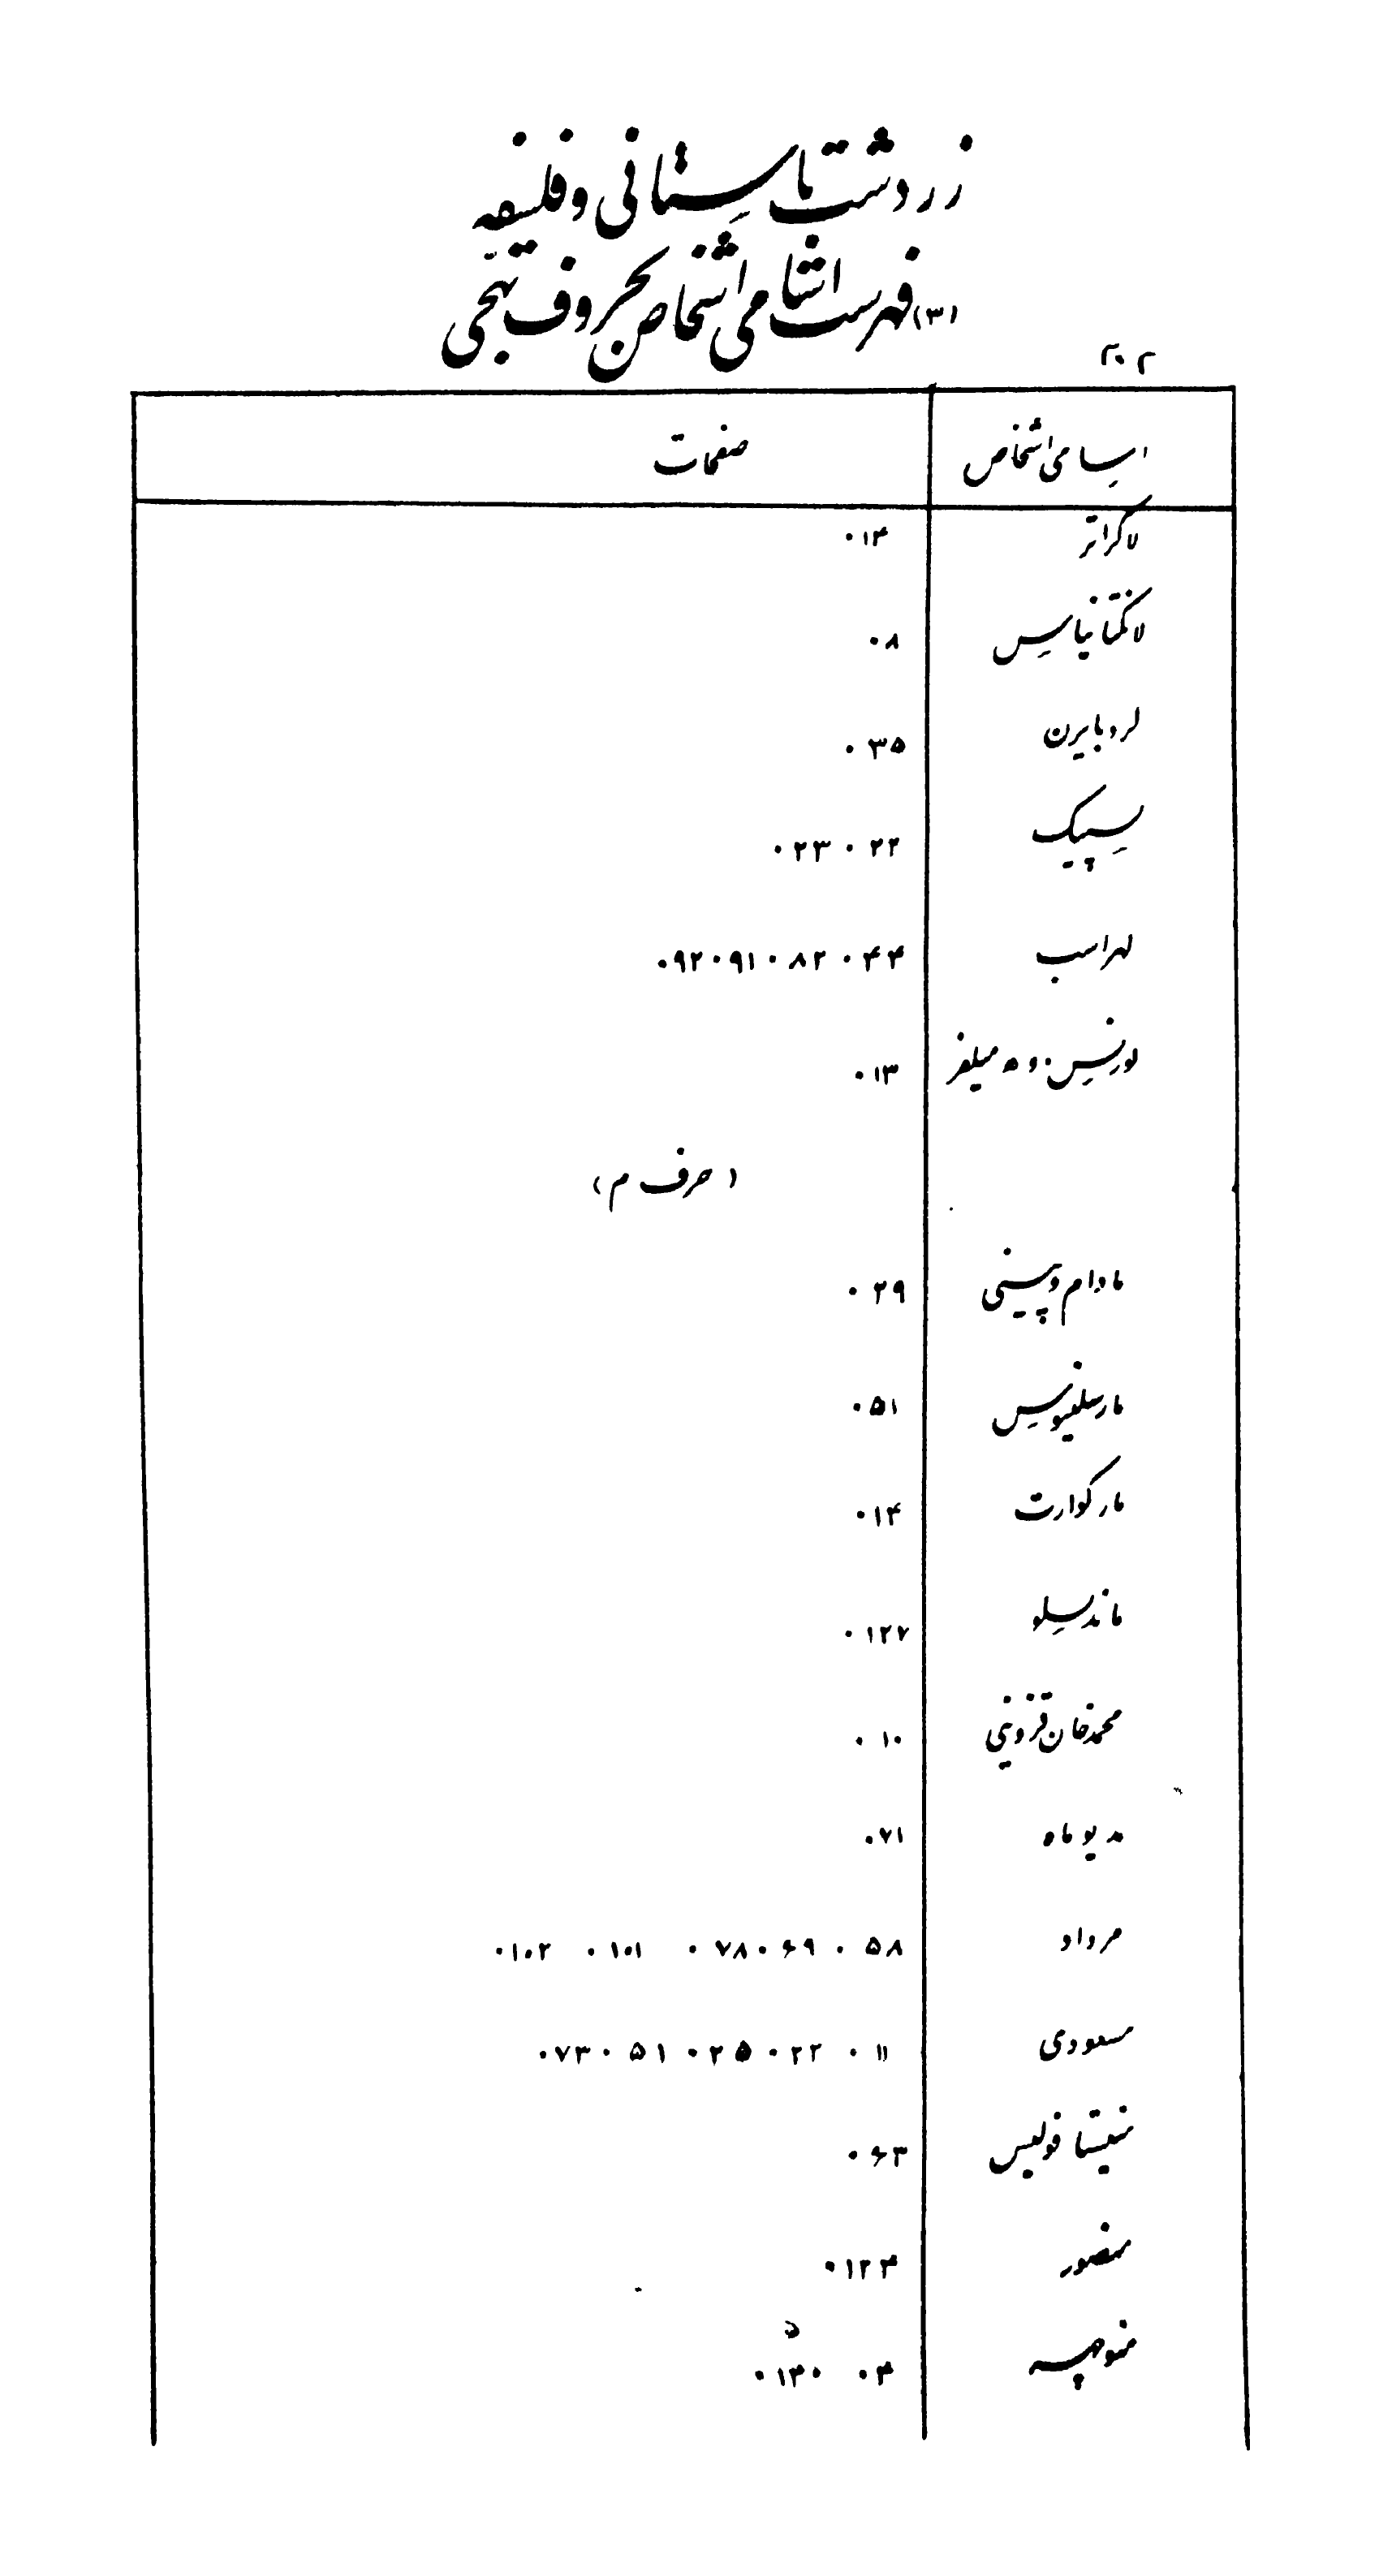 زردشت باستانی و فلسفه
(۳) فهرست اسامی اشخاص بحروف تهجّی
۳۰۲
اسامی اشخاص صفحات
لاکراتز ۱۴۰
لانکتانیاس ۸۰
لرد بایرن ۳۵۰
لسپیک ۲۲۰ ۲۳۰
لهراسب ۴۴۰ ۸۲۰ ۹۱۰ ۹۲۰
لورنس. و ه میلفر ۱۳۰
(حرف م)
مادام وپینی ۲۹۰
مارسلینوس ۵۱۰
مارکوارت ۱۴۰
ماندسلو ۱۲۷۰
محمدخان قزوینی ۱۰۰
مدیوماه ۷۱۰
مرداد ۵۸۰ ۶۹۰ ۷۸۰ ۱۰۱۰ ۱۰۲۰
مسعودی ۱۱۰ ۲۲۰ ۲۵۰ ۵۱۰ ۷۳۰
۶۳۰
منصور ۱۲۴۰
منوچهر ۴۰ ۱۳۰۰